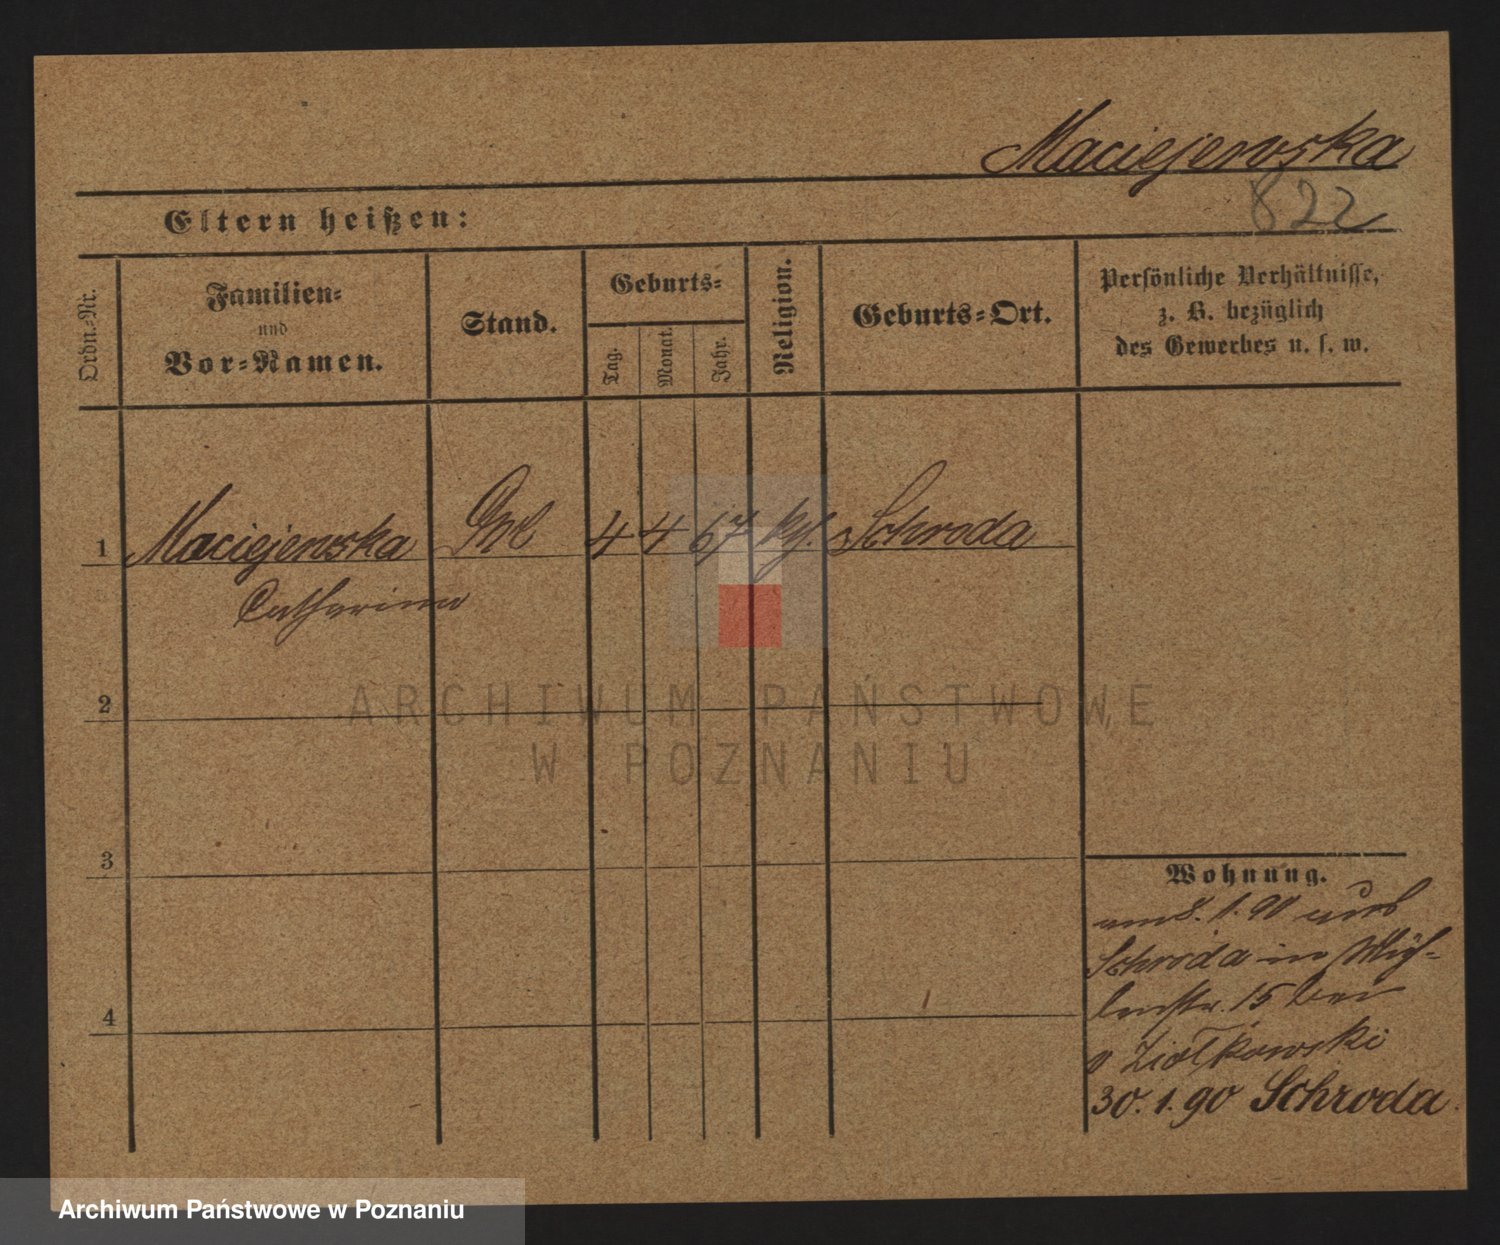 Maciejewska
822
Eltern heißen:
Ordn.-Nr.
Familien-
und
Vor-Namen.
Stand.
Geburts-
Tag.
Monat.
Jahr.
Religion.
Geburts-Ort.
Persönliche Verhältnisse,
z. B. bezüglich
des Gewerbes u. s. w.
1 Maciejewska 4 4 67 Schroda
Catharina
2
ARCHIWUM PAŃSTWOWE
W POZNANIU
3
Wohnung.
am 8. 1. 90 aus
Schroda in Müh-
lenstr. 15 bei
v Ziołkowski
4
30. 1. 90 Schroda.
Archiwum Państwowe w Poznaniu